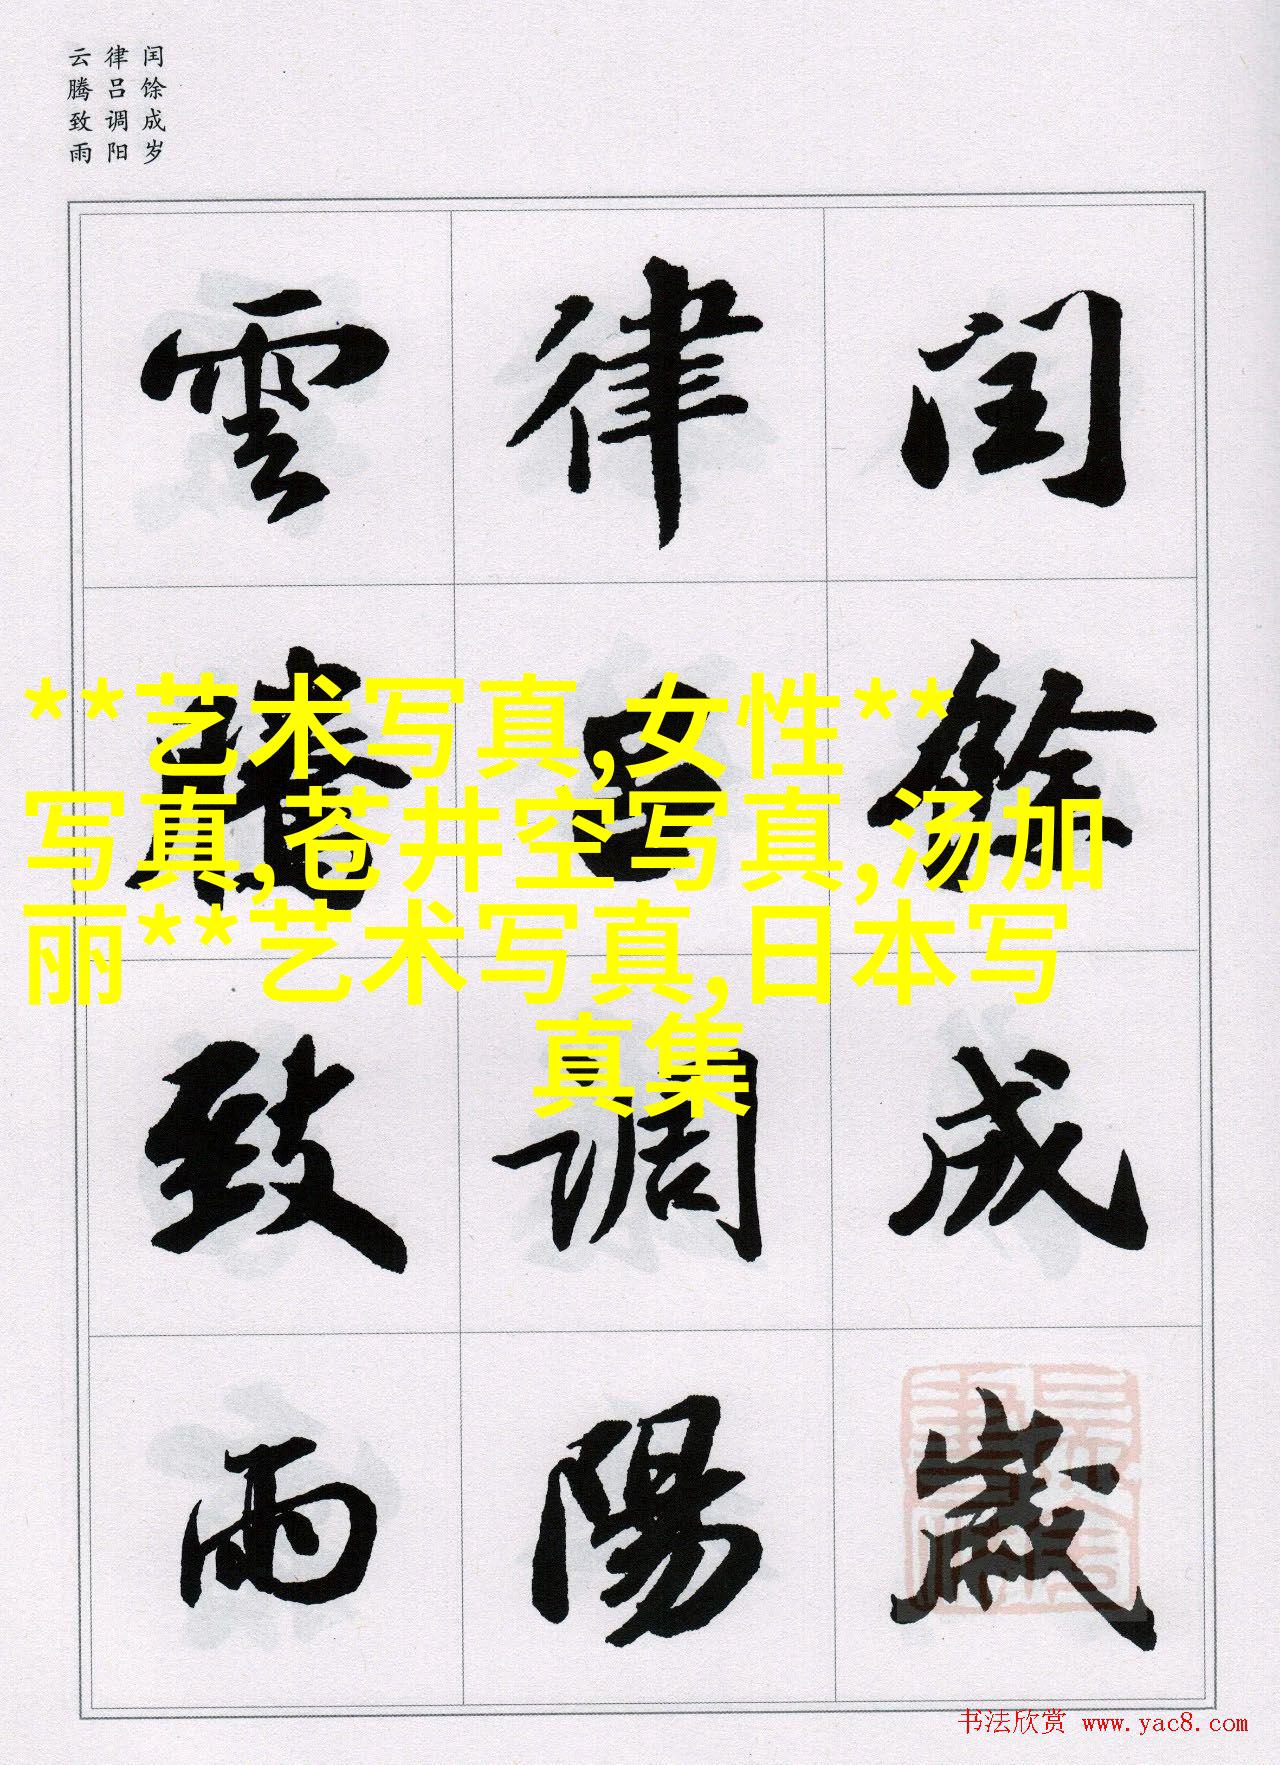 闰馀成岁
律吕调阳
云腾致雨
閏餘成歲
律吕調陽
雲騰致雨
**艺术写真,女性**
写真,苍井空写真,汤加
丽**艺术写真,日本写
真集
书法欣赏 www.yac8.com